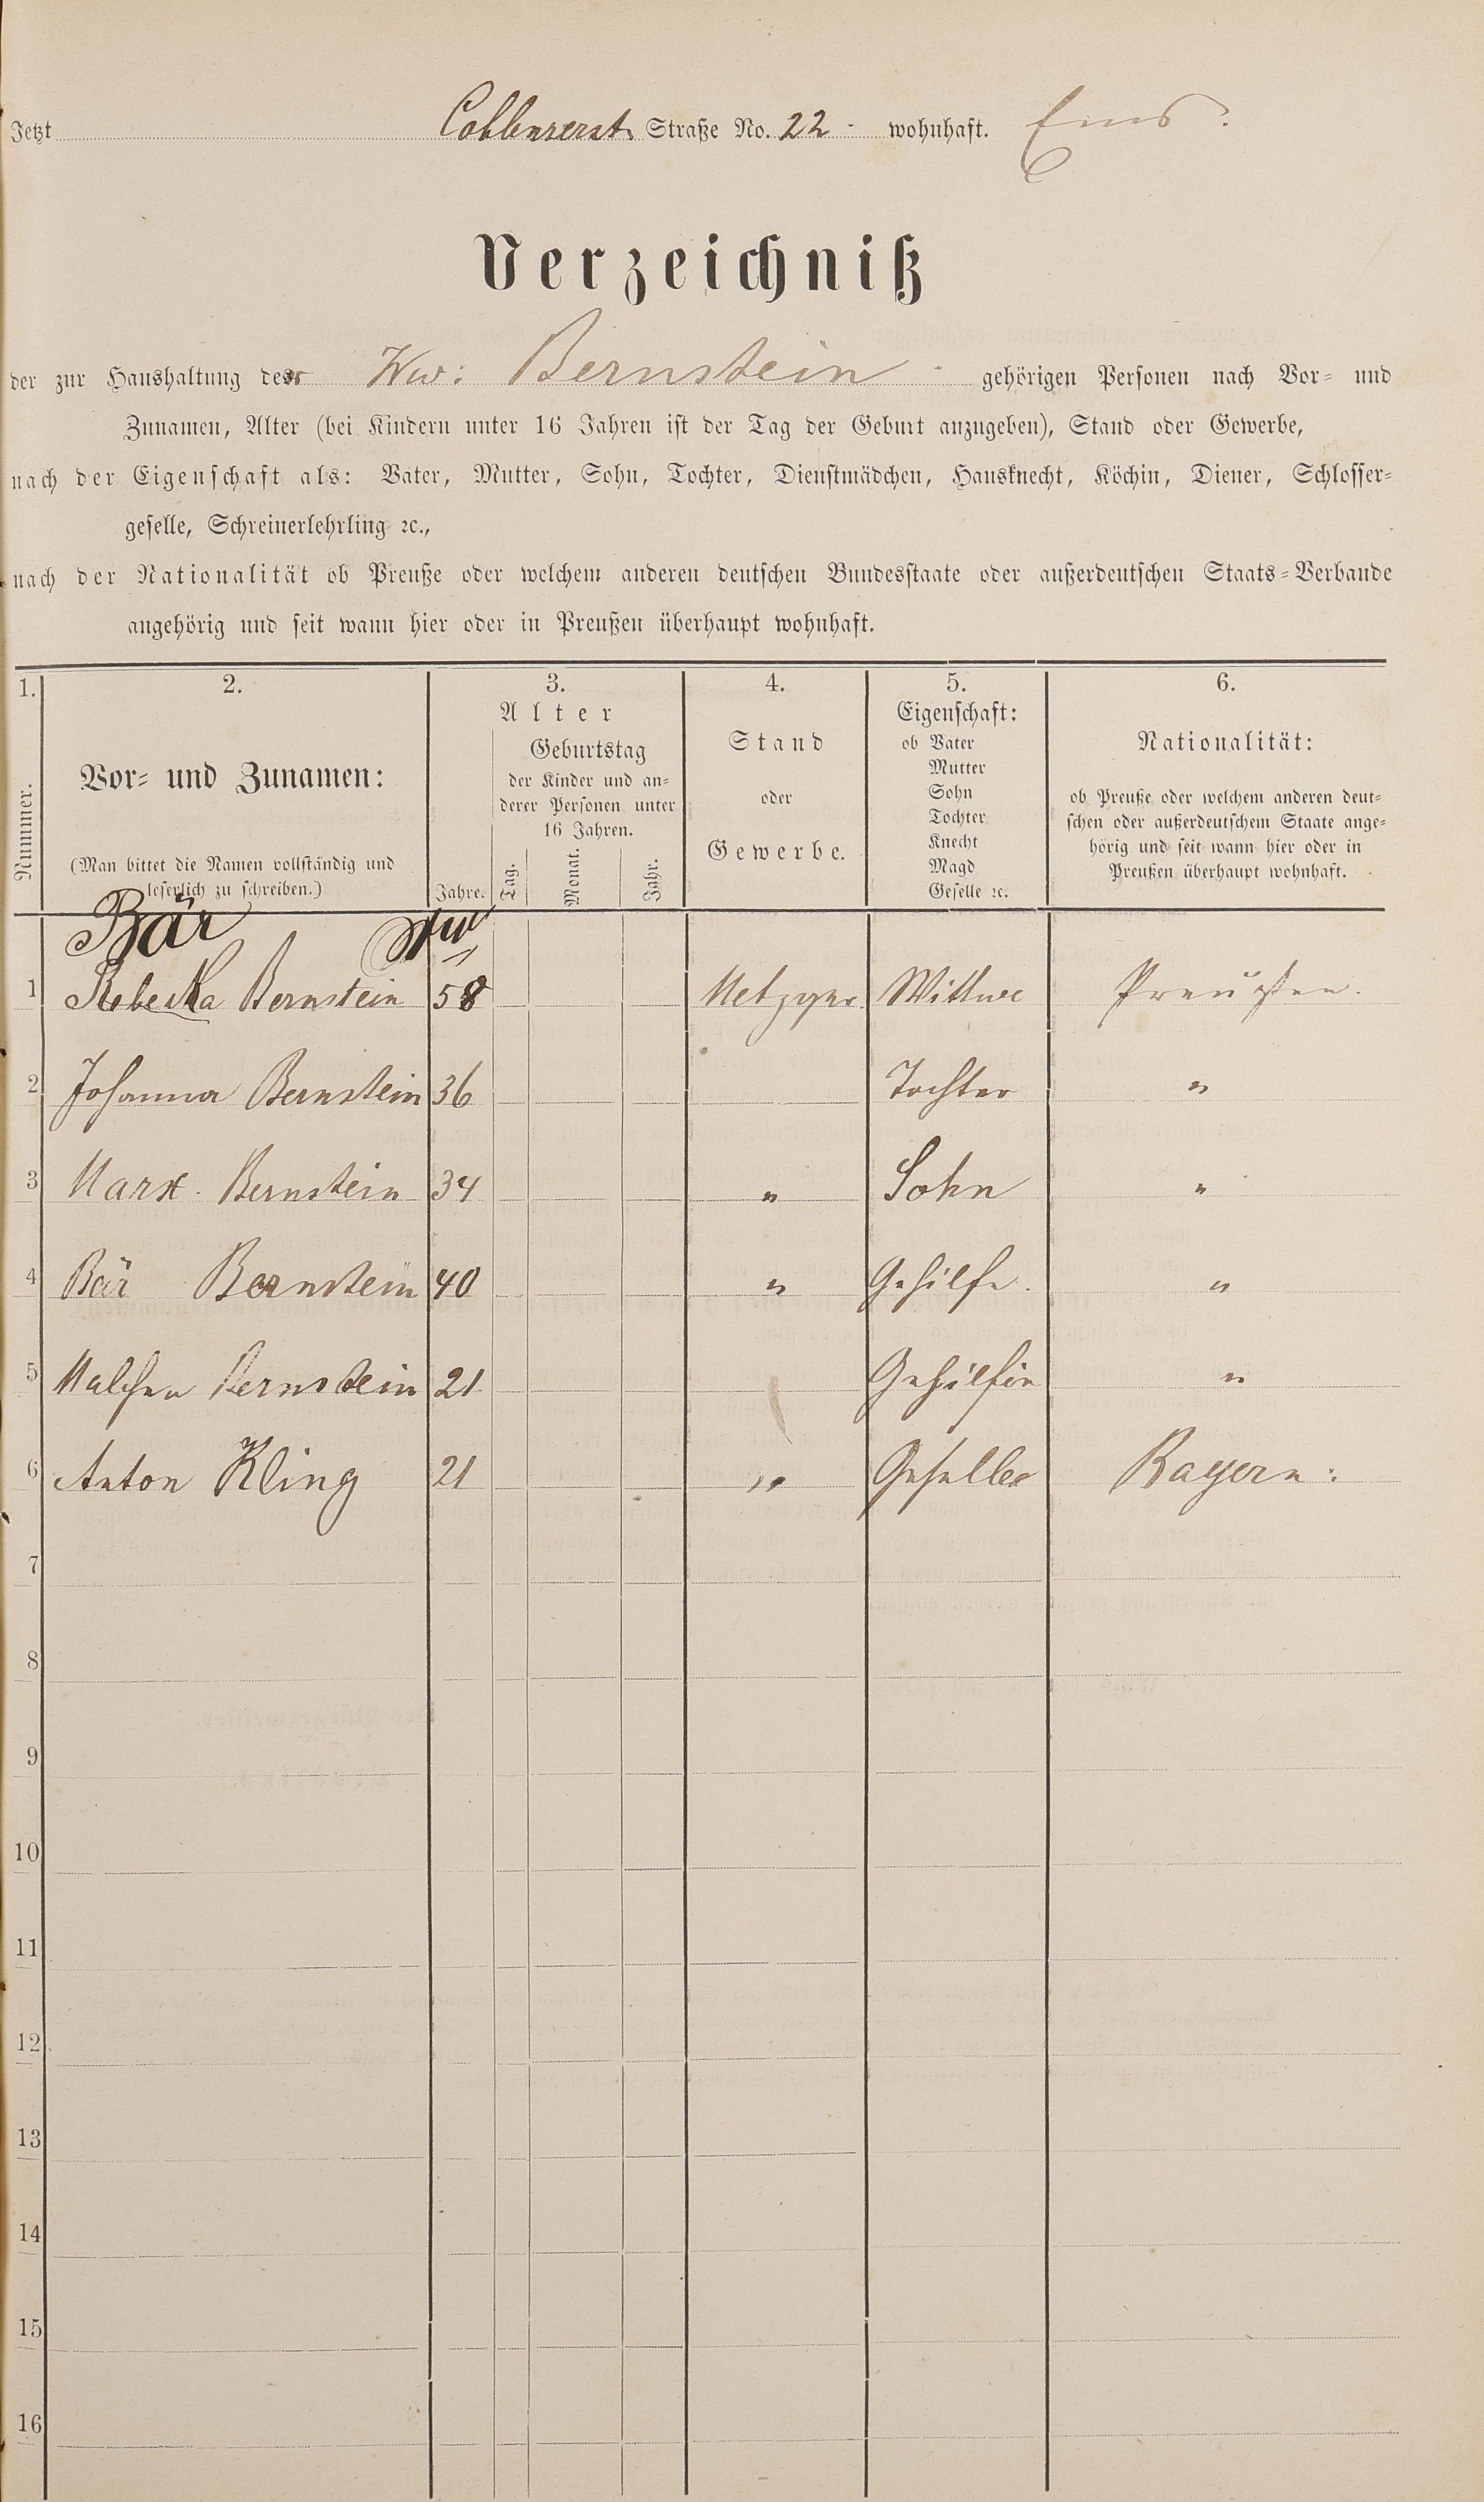 Jetzt Coblenzerst. Straße No. 22 wohnhaft. Ems.
Verzeichniß
der zur Haushaltung der Ww: Bernstein gehörigen Personen nach Vor- und
Zunamen, Alter (bei Kindern unter 16 Jahren ist der Tag der Geburt anzugeben), Stand oder Gewerbe,
nach der Eigenschaft als: Vater, Mutter, Sohn, Tochter, Dienstmädchen, Hausknecht, Köchin, Diener, Schlosser-
geselle, Schreinerlehrling ꝛc.,
nach der Nationalität ob Preuße oder welchem anderen deutschen Bundesstaate oder außerdeutschen Staats-Verbande
angehörig und seit wann hier oder in Preußen überhaupt wohnhaft.
1.
Nummer.
2.
Vor- und Zunamen:
(Man bittet die Namen vollständig und
leserlich zu schreiben.)
3.
Alter
Jahre.
Geburtstag
der Kinder und an-
derer Personen unter
16 Jahren.
Tag. Monat. Jahr.
4.
Stand
oder
Gewerbe.
5.
Eigenschaft:
ob Vater
Mutter
Sohn
Tochter
Knecht
Magd
Geselle ꝛc.
6.
Nationalität:
ob Preuße oder welchem anderen deut-
schen oder außerdeutschem Staate ange-
hörig und seit wann hier oder in
Preußen überhaupt wohnhaft.
Bär Ww
1 Rebecka Bernstein 58 Metzger Wittwe Preußen.
2 Johanna Bernstein 36 Tochter "
3 Marx Bernstein 34 " Sohn "
4 Bär Bernstein 40 " Gehilfe "
5 Malchen Bernstein 21 Gehilfin "
6 Anton Kling 21 " Geselle Bayern:
7
8
9
10
11
12
13
14
15
16